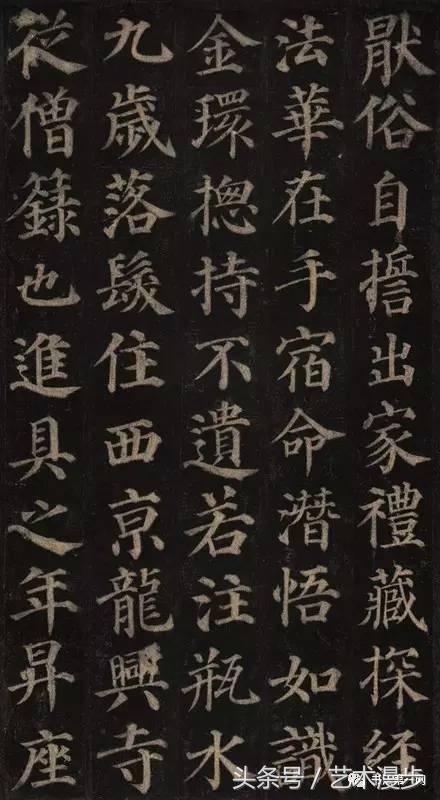 猒俗自誓出家禮藏探經
法華在手宿命潛悟如識
金環揔持不遺若注瓶水
九歲落髮住西京龍興寺
從僧籙也進具之年昇座
头条号 / 艺术漫步